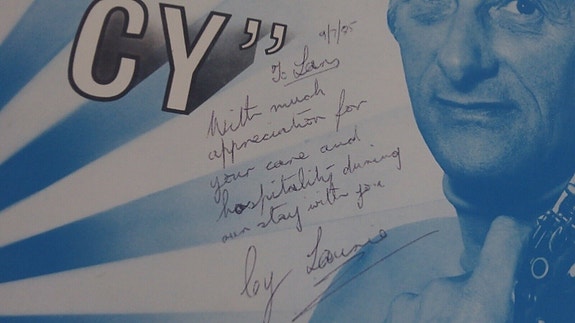 CY”
9/7/85
To
With much
appreciation for
your care and
hospitality during
our stay with you
by Laurie